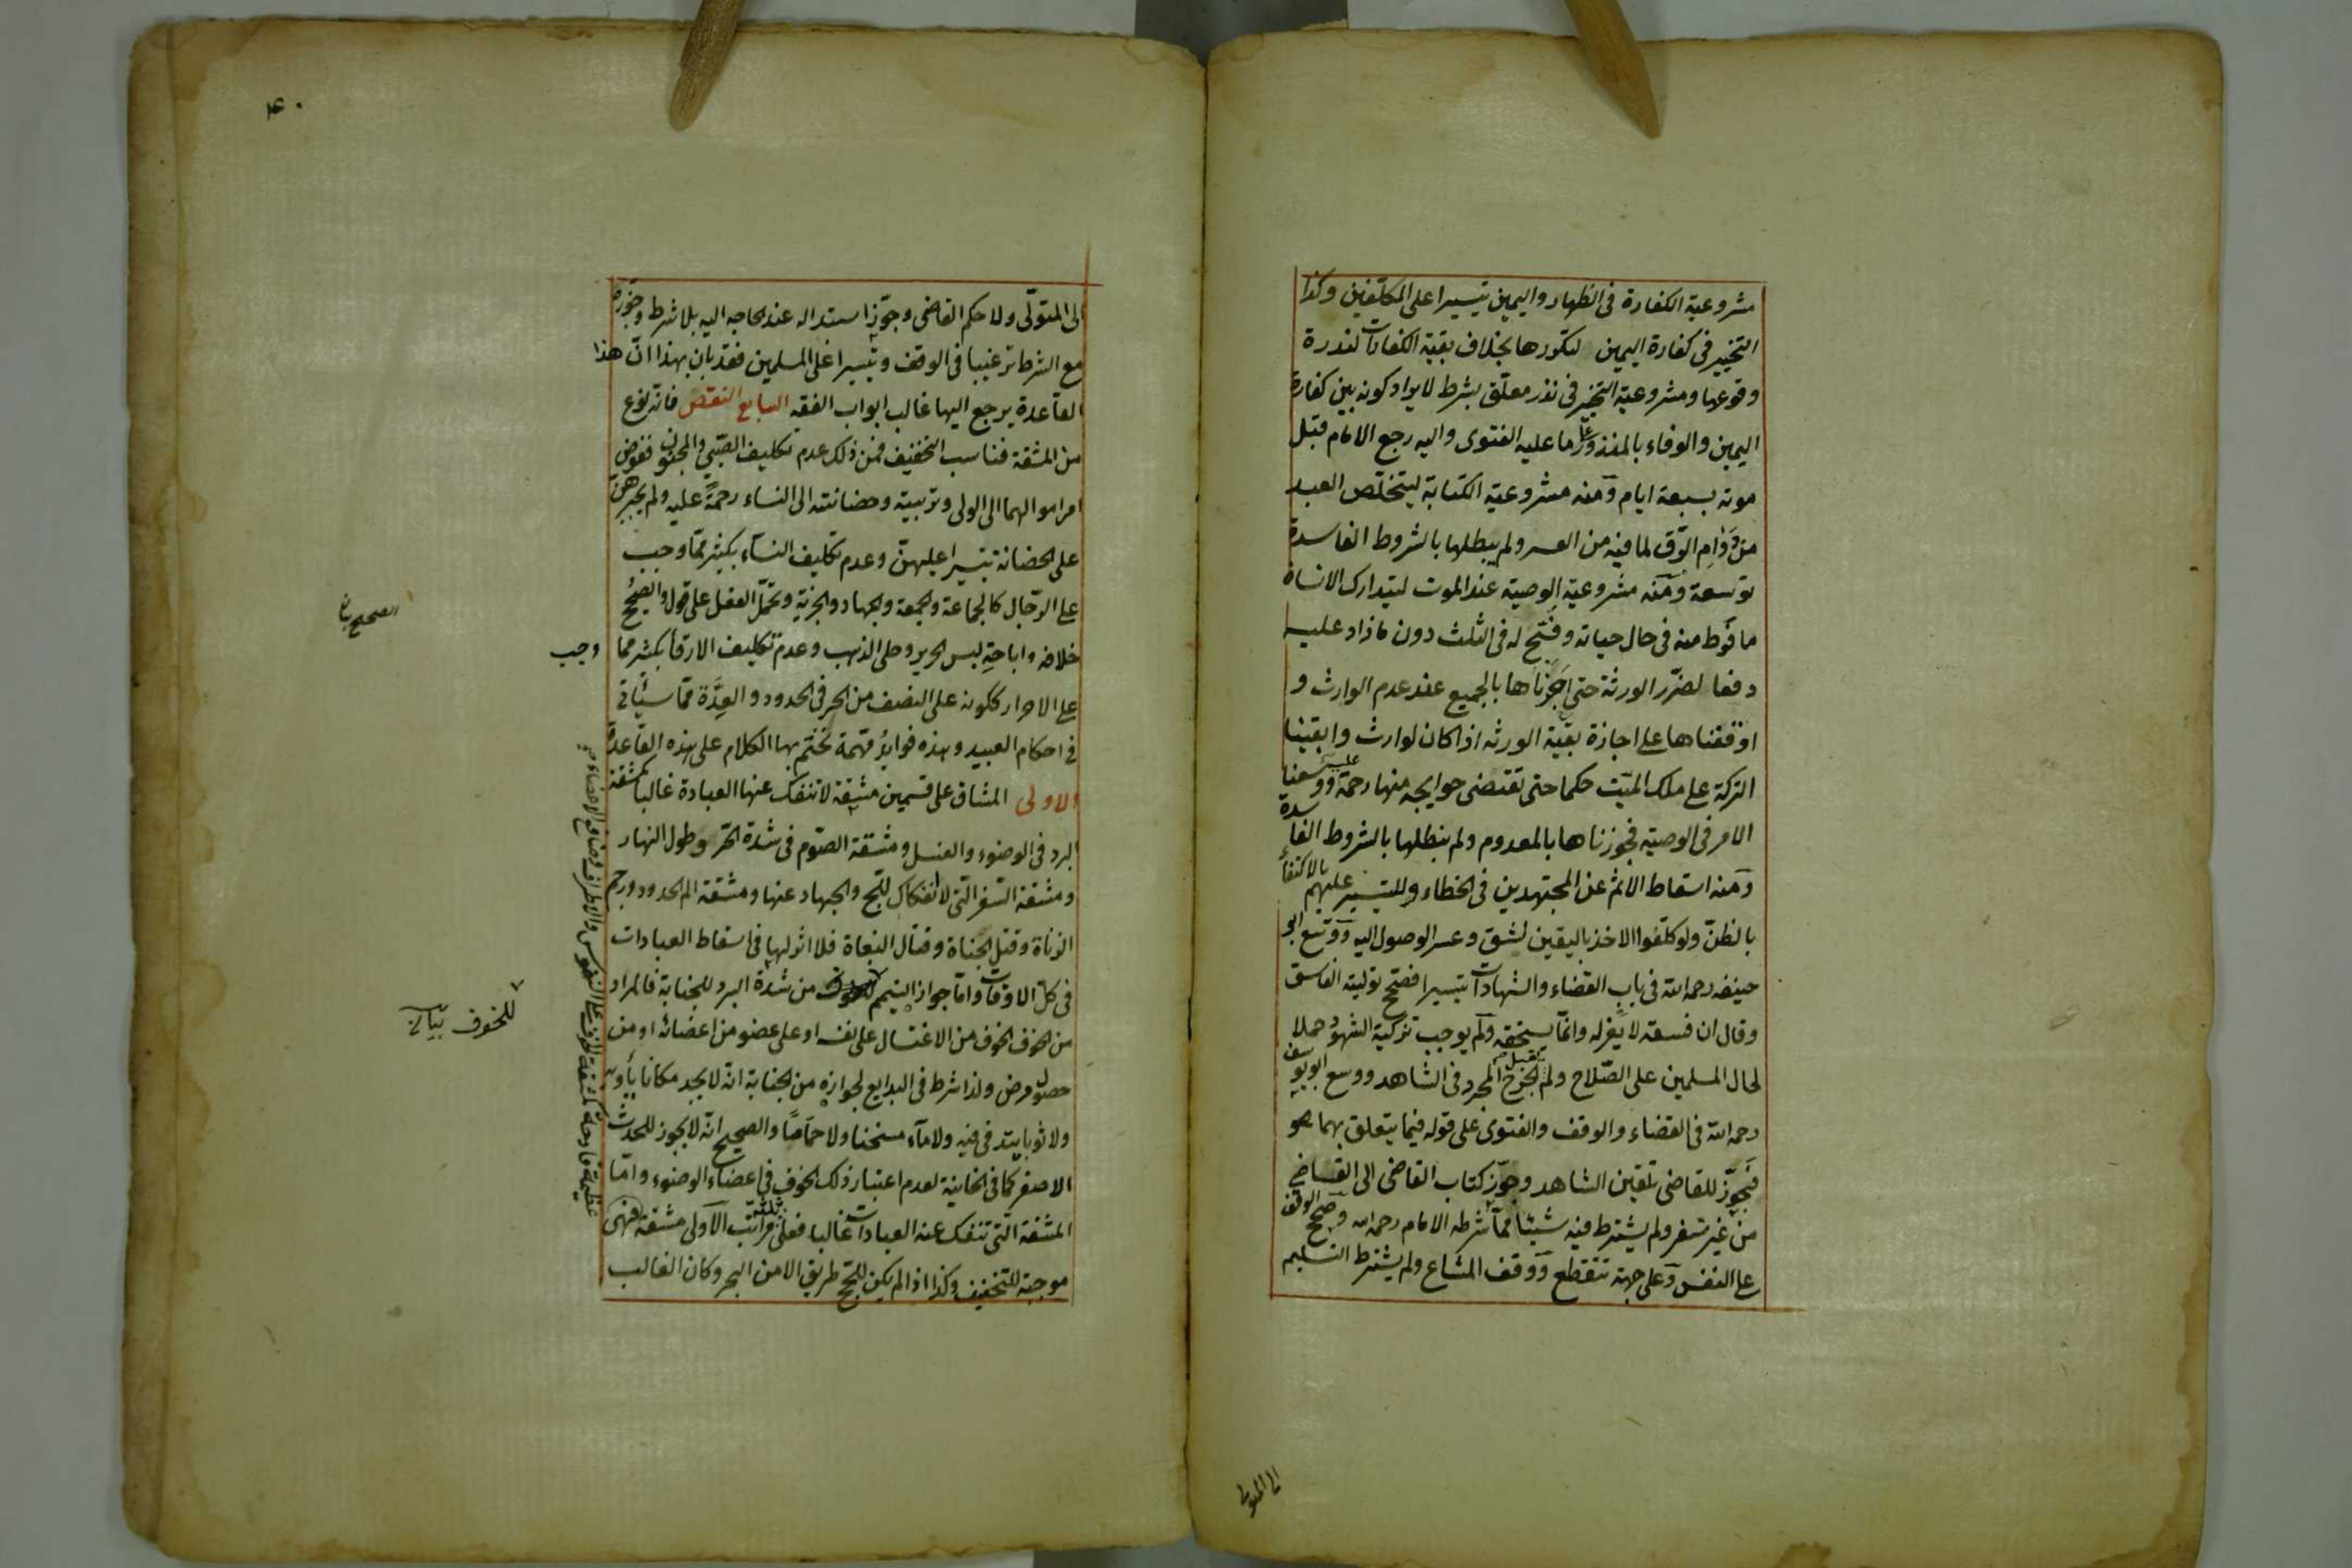 مشروعية الكفارة فى الظهار واليمين تيسيرا على المكلّفين وكذا
التخيير فى كفارة اليمين لتكورها بخلاف بقية الكفارات لندرة
وقوعها ومشروعية التخير فى نذر معلّق بشرط لا يراد كونه بين كفارة
اليمين والوفاء بالمنذور على ما عليه الفتوى واليه رجع الامام قبل
موته بسبعة ايام ومنه مشروعية الكتابة ليتخلّص العبد
من دوام الرّق لما فيه من العسر ولم يبطلها بالشروط الفاسدة
توسعة ومنه مشروعية الوصية عند الموت ليتدارك الانسان
ما فرط منه فى حال حياته وفتح له فى الثلث دون ما زاد عليه
دفعا لضرر الورثة حتى اجزناها بالجميع عند عدم الوارث و
اوقفناها على اجازة بقية الورثه اذا كان لوارث وابقينا
التركة على ملك الميّت حكما حتى تقتضى حوايجه منها رحمة عليه ووسعنا
الامر فى الوصية فجوزناها بالمعدوم ولم نبطلها بالشروط الفاسدة
ومنه اسقاط الاثم عن المجتهدين فى الخطاء وللتيسير عليهم بالاكتفاء
بالظنّ ولو كلفوا الاخذ باليقين لشق وعسر الوصول اليه ووسّع ابو
حنيفه رحمه الله فى باب القضاء والشهادات تيسيرا فصحّح تولية الفاسق
وقال ان فسقه لا يعزله وانّما يستحقه ولم يوجب تزكية الشهود حملا
لحال المسلمين على الصّلاح ولم يقبل الجرح المجرد فى الشاهد ووسع ابو يوسف
رحمه الله فى القضاء والوقف والفتوى على قوله فيما يتعلق بهما
فجوّز للقاضى تلقين الشاهد وجوّز كتاب القاضى الى القاضى
من غير سفر ولم يشترط فيه شيئا مما شرطه الامام رحمه الله وصحح الوقف
على النفس وعلى جهة تنقطع ووقف المشاع ولم يشترط التسليم
الى المتولى
٤٠
الى المتولّى ولا حكم القاضى وجوّز استبداله عند الحاجه اليه بلا شرط وجوّزه
مع الشرط ترغيبا فى الوقف وتيسيرا على المسلمين فقد بان بهذا انّ هذا
القاعدة يرجع اليها غالب ابواب الفقه السابع النقص فانه نوع
من المشقة فناسب التخفيف فمن ذلك عدم تكليف الصّبي والمجنون ففوض
امر اموالهما الى الولى وتربيته وحضانته الى النساء رحمةً عليه ولم يجبرهن
على الحضانة تيسيرا عليهنّ وعدم تكليف النسآء بكثير ممّا وجب
على الرّجال كالجماعة والجمعة والجهاد والجزية وتحمّل العقل على قول والصحيح
خلافه واباحة لبس الحرير وحلى الذهب وعدم تكليف الارقا بكثير مما وجب
على الاحرار ككونه على النصف من الحر فى الحدود والعدّة ممّا سيأتى
فى احكام العبيد وهذه فوايد مهّمة نختم بها الكلام على هذه القاعدة
الاولى المشاق على قسمين مشقة لا تنفك عنها العبادة غالبا كمشقة
البرد فى الوضوء والغسل ومشقة الصّوم فى شدّة الحّر وطول النهار
ومشقة السّفر الّتى لا انفكاك للحّج والجهاد عنها ومشقة الم الحدود ورجم
الزناة وقتل الجناة وقتال البغاة فلا اثر لها فى اسقاط العبادات
فى كلّ الاوقات وامّا جواز التيمم من شدّة البرد للجنابة فالمراد
من الخوف الخوف من الاغتسال على نفسه او على عضو من اعضائه او من
حصول مرض ولذا شرط فى البدايع لجوازه من الجنابة انّه لا يجد مكانا يأويه
ولا ثوبا يتدفى فيه ولا مآء مسخنا ولا حمّاما والصحيح انّه لا يجوز للحدث
الاصغر كما فى الخانية لعدم اعتبار ذلك الخوف فى اعضاء الوضوء وامّا
المشقة الّتى تنفك عنه العبادات غالبا فعلى ثلثه مراتب الاولى مشقة فهى
موجبة للتخفيف وكذا اذا لم يكن للحّج طريق الا من البحر وكان الغالب
الصحيح بيان
للخوف بيان
عظيمة فادحة كمشقة الخوف على النفوس والاطراف ومنافع الاعضاء